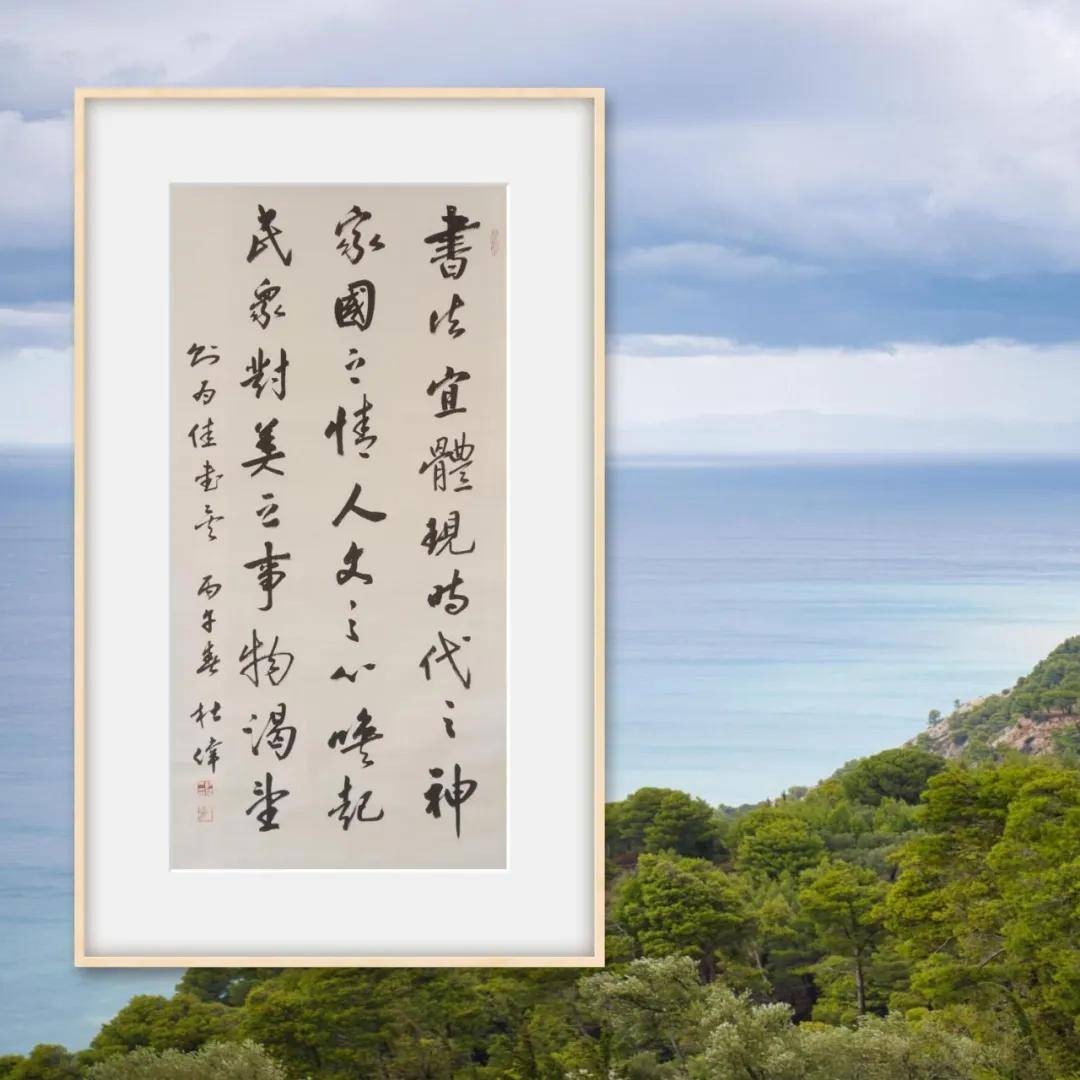 書法宜體現時代之神
家國之情人文之心喚起
民眾對美之事物渴望
則為佳書矣 丙午春 杜偉